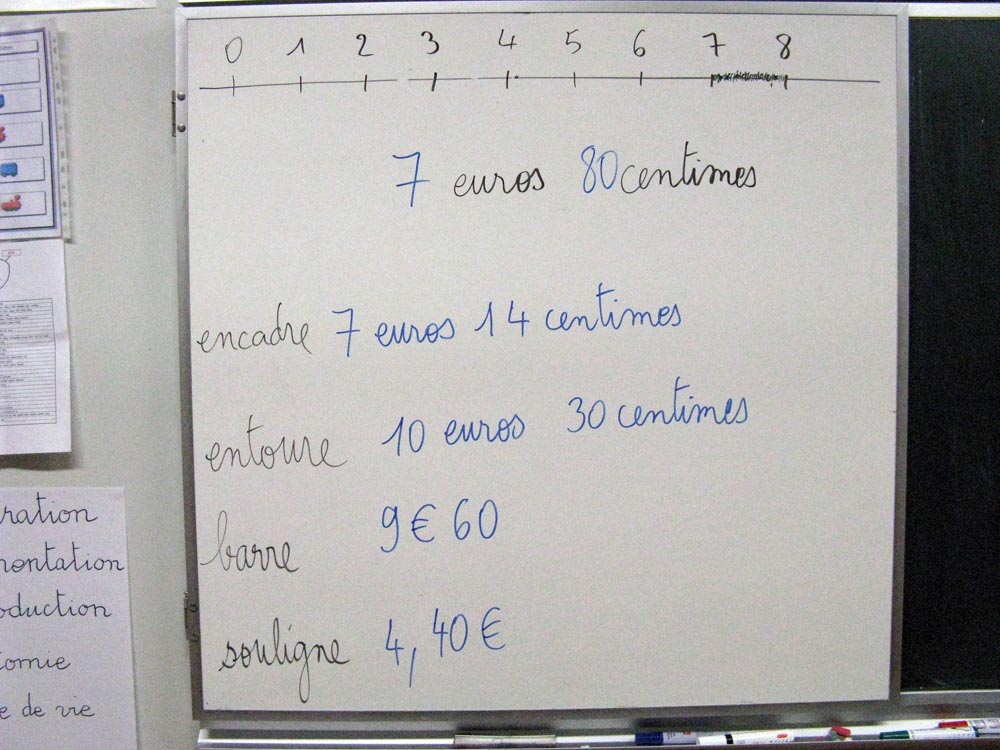 0 1 2 3 4 5 6 7 8
7 euros 80 centimes
encadre 7 euros 14 centimes
entoure 10 euros 30 centimes
barre 9€60
souligne 4,40€
ration
mentation
oduction
tomie
e de vie